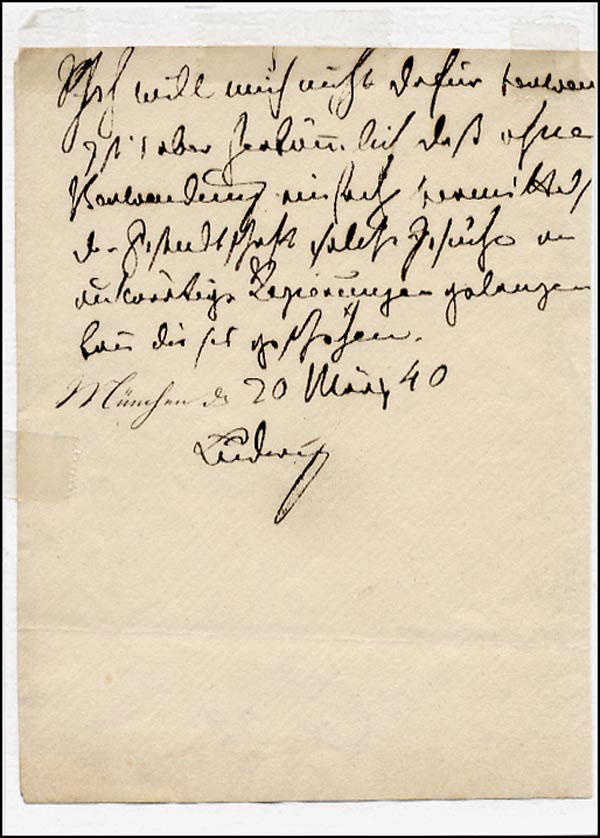 Ich will mich nicht dafür verwen
ist's aber herkömmlich daß ohne
Verwendung einfach vermittels
der Gesandtschaft solche Gesuche an
auswärtige Regierungen gelangen
kann dieses geschehen.
München d. 20 März 40
Ludwig